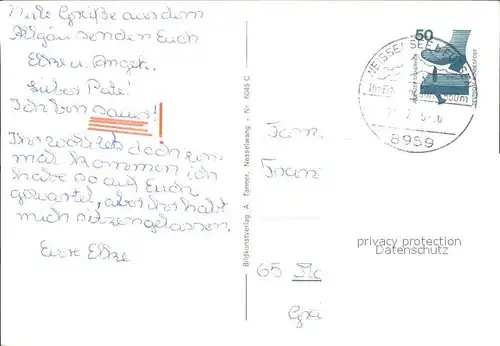 Viele Grüße aus dem
Allgäu senden Euch
Elke u. Angeh.
Lieber Pate!
Ich bin sauer!
Ihr wolltet doch ein-
mal kommen ich
habe so auf Euch
gewartet, aber Ihr habt
mich sitzengelassen.
Eure Elke
Bildkunstverlag A. Tanner, Nesselwang - Nr. 6045 C
50
WEISSENSEE
8959
Fam.
Franz
65 Ma
Grei
privacy protection
Datenschutz